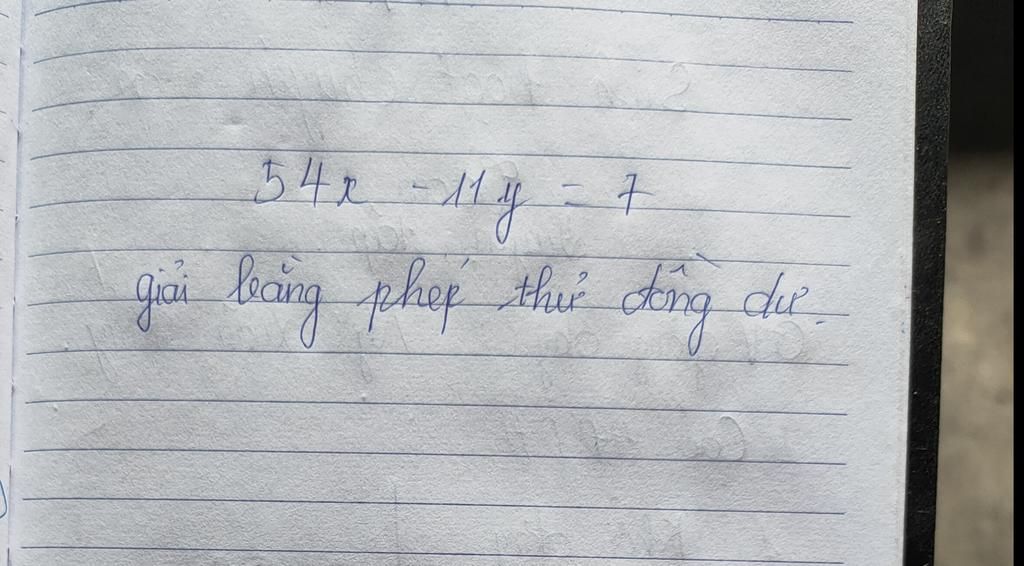 54x - 11y = 7
giải bằng phép thử đồng dư.